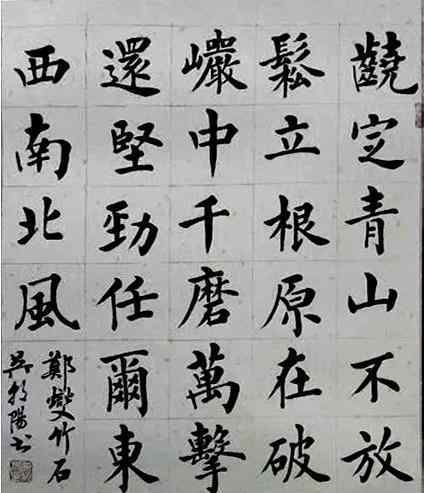 定青山不放
鬆立根原在破
巗中千磨萬擊
還堅勁任爾東
西南北風
鄭燮竹石
吳陽书